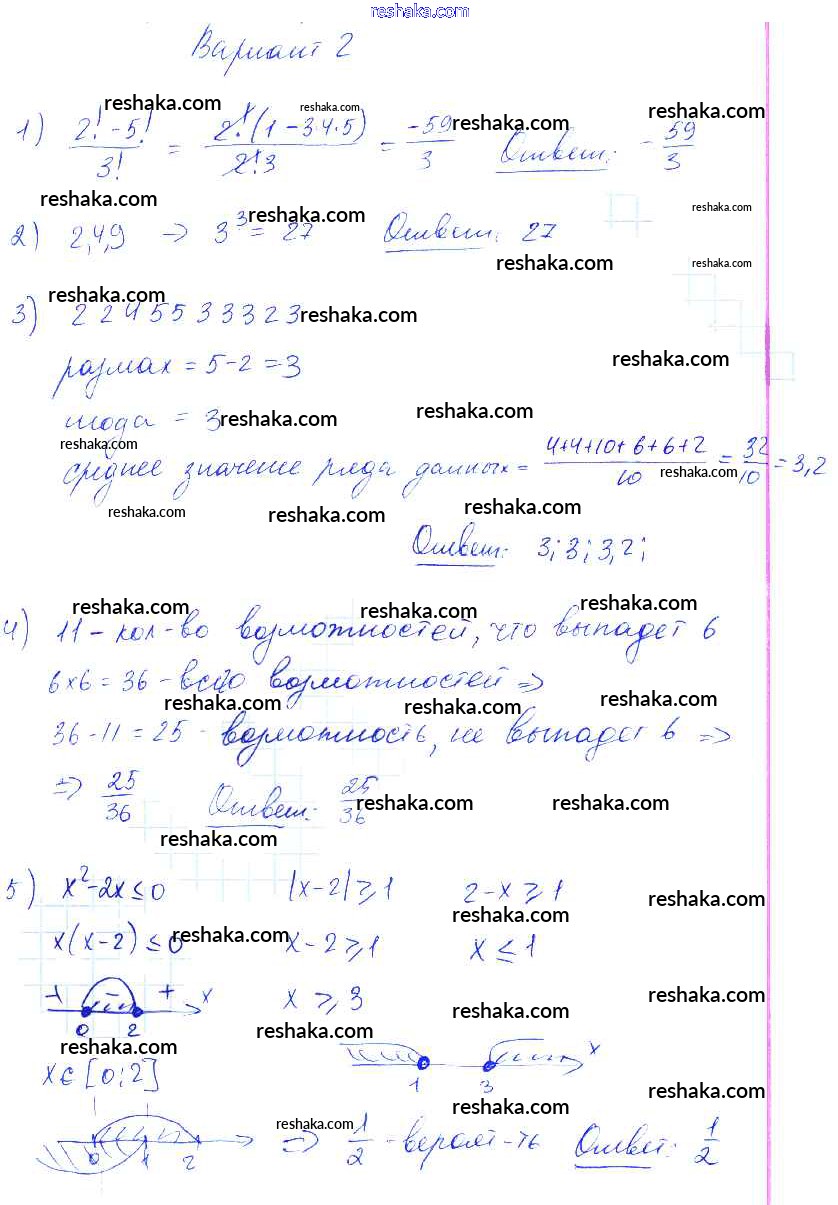 reshaka.com
Вариант 2
reshaka.com reshaka.com reshaka.com
1) (2! - 5!)/3! = (2!(1 - 3·4·5))/(2!·3) = -59/3 reshaka.com Ответ: -59/3
reshaka.com reshaka.com reshaka.com
2) 2,4,9 → 3³ = 27 Ответ: 27
reshaka.com reshaka.com
reshaka.com
3) 2 2 4 5 5 3 3 3 2 3 reshaka.com
размах = 5-2=3 reshaka.com
мода = 3 reshaka.com reshaka.com
reshaka.com
среднее значение ряда данных = (4+4+10+6+6+2)/10 = 32/10 = 3,2
reshaka.com
reshaka.com reshaka.com reshaka.com
Ответ: 3; 3; 3,2;
reshaka.com reshaka.com reshaka.com
4) 11 - кол-во возможностей, что выпадет 6
6×6 = 36 - всего возможностей ⇒
reshaka.com reshaka.com reshaka.com
36-11=25 - возможность, не выпадет 6 ⇒
⇒ 25/36 Ответ: 25/36 reshaka.com reshaka.com
reshaka.com
5) x²-2x≤0 |x-2|≥1 2-x≥1
reshaka.com reshaka.com
x(x-2)≤0 reshaka.com x-2≥1 x≤1
+ - + x x≥3 reshaka.com reshaka.com
0 2 reshaka.com
reshaka.com x
x∈[0;2] 1 3
reshaka.com reshaka.com
reshaka.com
0 1 2 ⇒ 1/2 - вероят-ть Ответ: 1/2